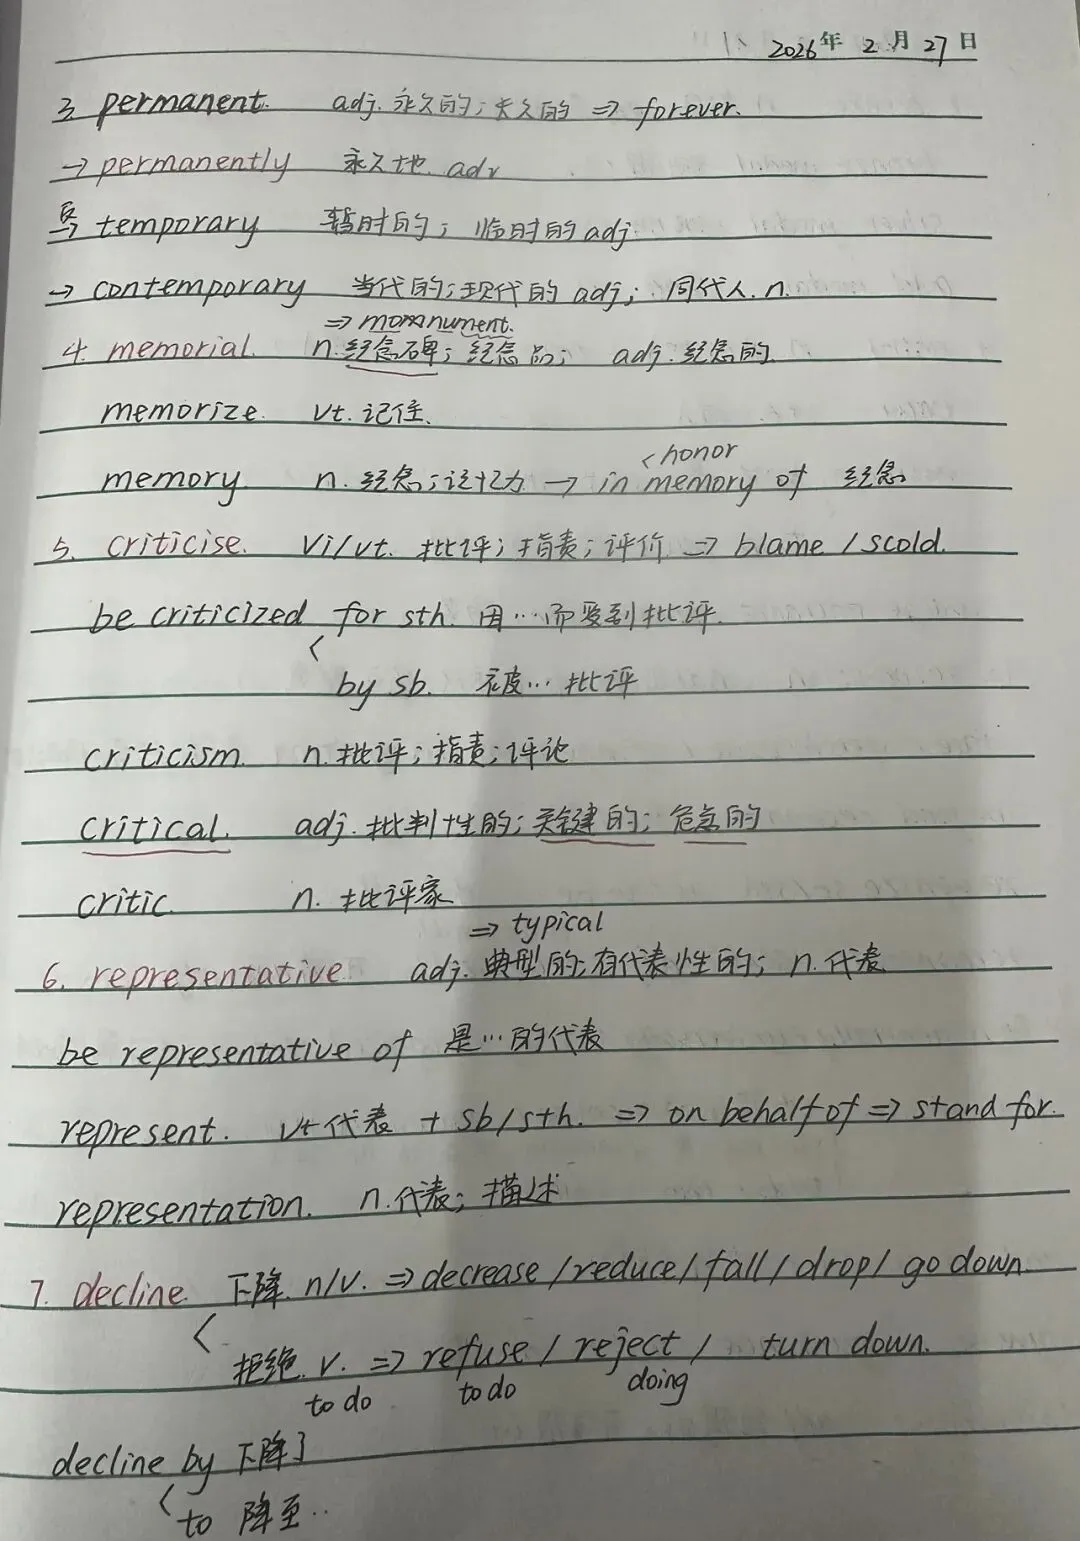 2026年 2月 27日
3 permanent. adj. 永久的;长久的 ⇒ forever.
→ permanently 永久地. adv
temporary 暂时的; 临时的 adj.
→ contemporary 当代的;现代的 adj; 同代人. n.
⇒ monnument.
4. memorial. n. 纪念碑; 纪念品; adj. 纪念的.
memorize. vt. 记住.
< honor
memory. n. 纪念;记忆力 → in memory of 纪念
5. criticise. vi/vt. 批评;指责;评价 ⇒ blame / scold.
be criticized for sth. 因…而受到批评.
< by sb. 被…批评
criticism. n. 批评;指责;评论
critical. adj. 批判性的;关键的; 危急的
critic. n. 批评家
⇒ typical
6. representative. adj. 典型的;有代表性的; n. 代表
be representative of 是…的代表
represent. vt 代表 + sb/sth. ⇒ on behalf of ⇒ stand for.
representation. n. 代表; 描述
7. decline. 下降. n/v. ⇒ decrease /reduce/ fall / drop/ go down.
< 拒绝. v. ⇒ refuse / reject / turn down.
to do to do doing
decline by 下降了
< to 降至..